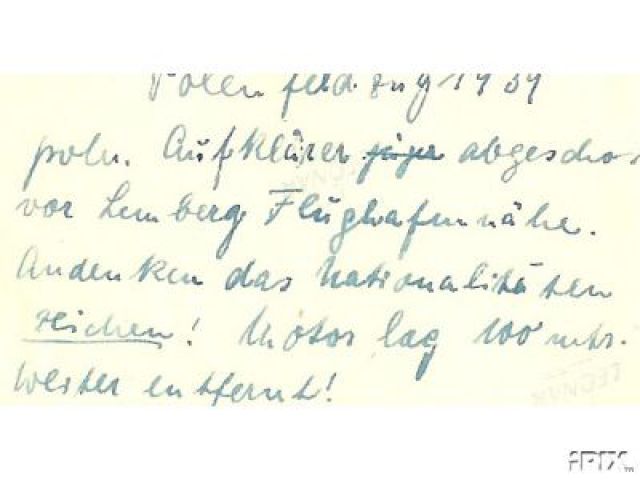 Polenfeldzug 1939
poln. Aufklärer abgeschos
vor Lemberg Flughafennähe.
Andenken das Nationalitäten
zeichen! Motor lag 100 mtr.
weiter entfernt!
LEONAR
iPIX